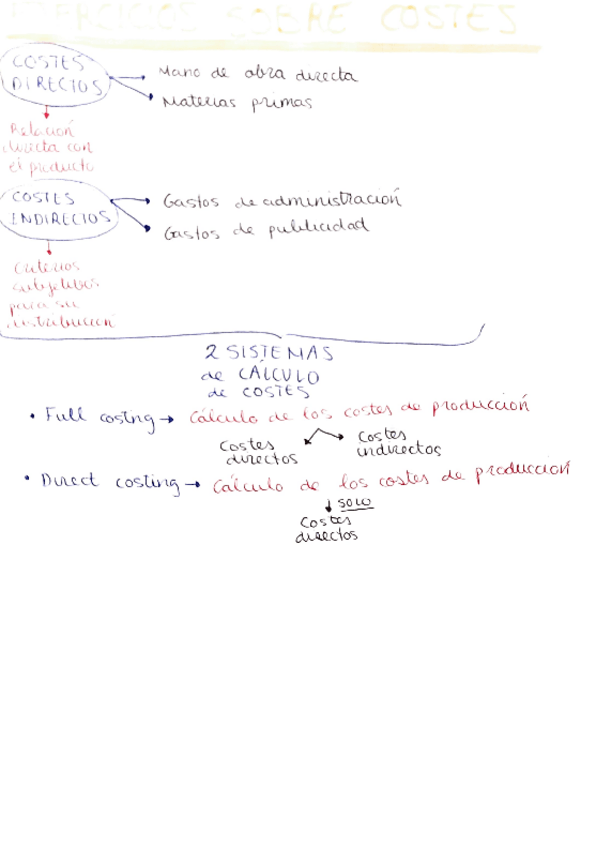 EJERCICIOS SOBRE COSTES
COSTES
DIRECTOS
→ Mano de obra directa
→ Materias primas
Relación
directa con
el producto
COSTES
INDIRECTOS
→ Gastos de administración
→ Gastos de publicidad
Criterios
subjetivos
para su
distribución
2 SISTEMAS
de CÁLCULO
de COSTES
• Full costing → Cálculo de los costes de producción
Costes
directos
Costes
indirectos
• Direct costing → Cálculo de los costes de producción
↓ solo
Costes
directos